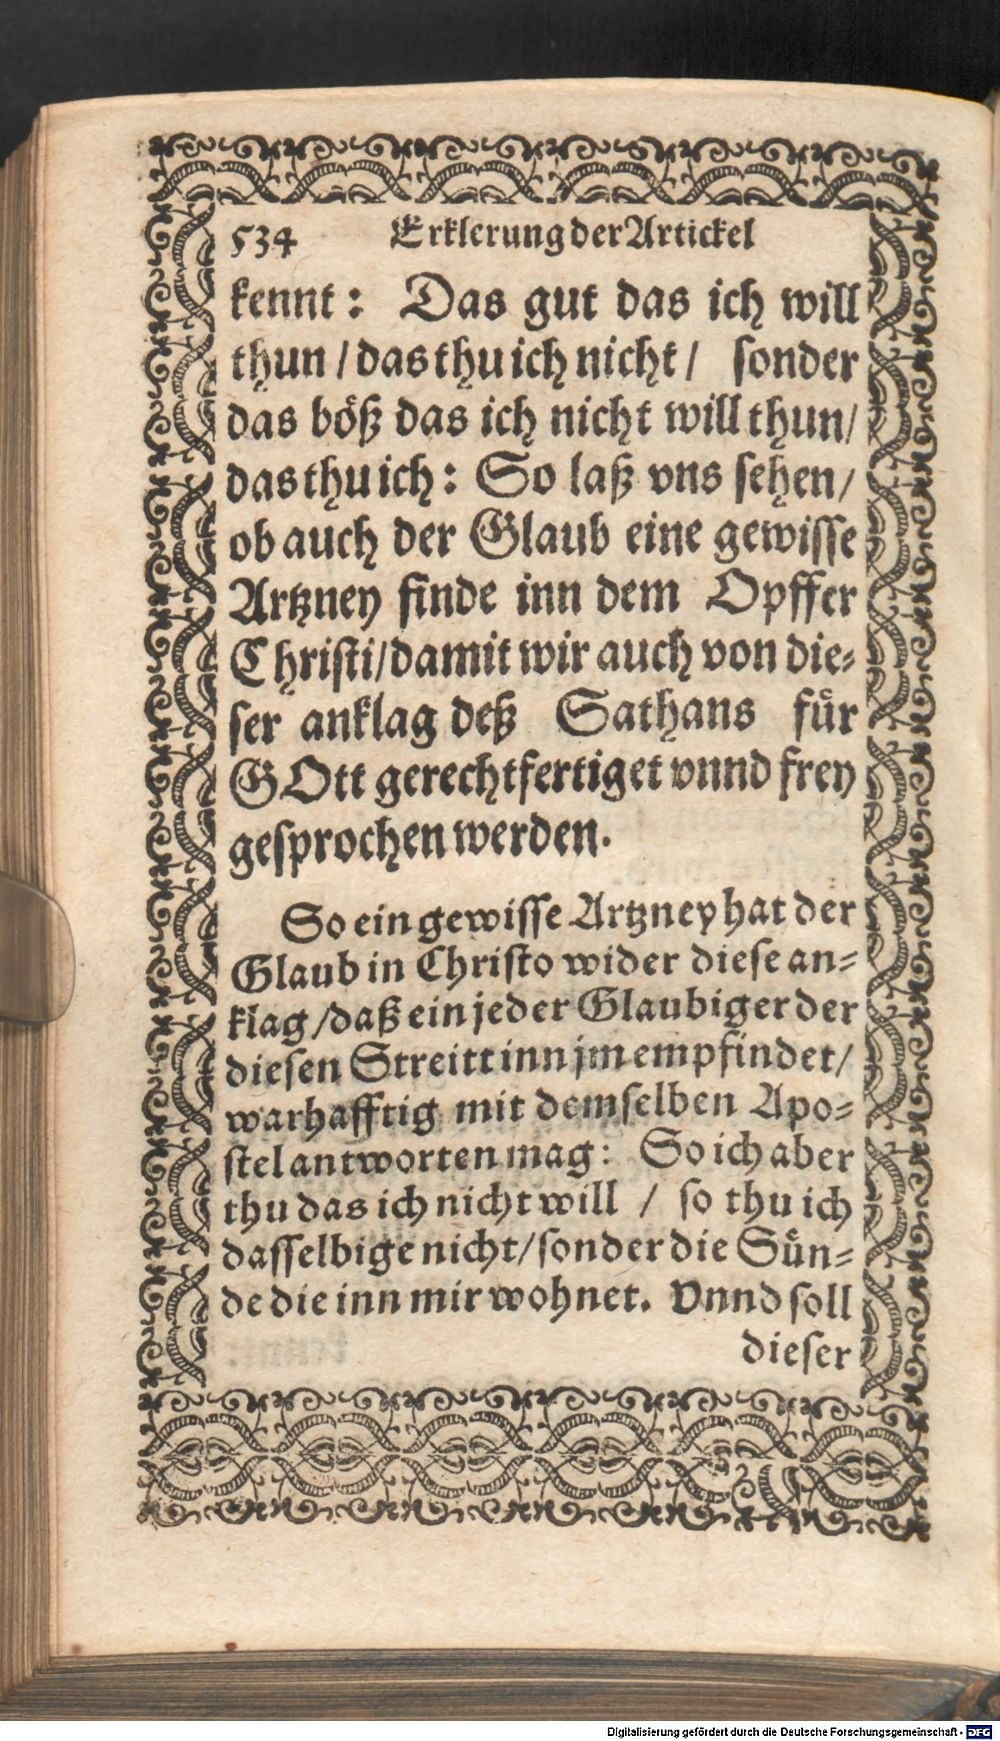 534 Erklerung der Artickel
kennt: Das gut das ich will
thun / das thu ich nicht / sonder
das böß das ich nicht will thun /
das thu ich: So laß vns sehen /
ob auch der Glaub eine gewisse
Artzney finde inn dem Opffer
Christi / damit wir auch von die-
ser anklag deß Sathans fuͤr
GOtt gerechtfertiget vnnd frey
gesprochen werden.
So ein gewisse Artzney hat der
Glaub in Christo wider diese an-
klag / daß ein jeder Glaubiger der
diesen Streitt inn jm empfindet /
warhafftig mit demselben Apo-
stel antworten mag: So ich aber
thu das ich nicht will / so thu ich
dasselbige nicht / sonder die Suͤn-
de die inn mir wohnet. Vnnd soll
dieser
Digitalisierung gefördert durch die Deutsche Forschungsgemeinschaft - DFG